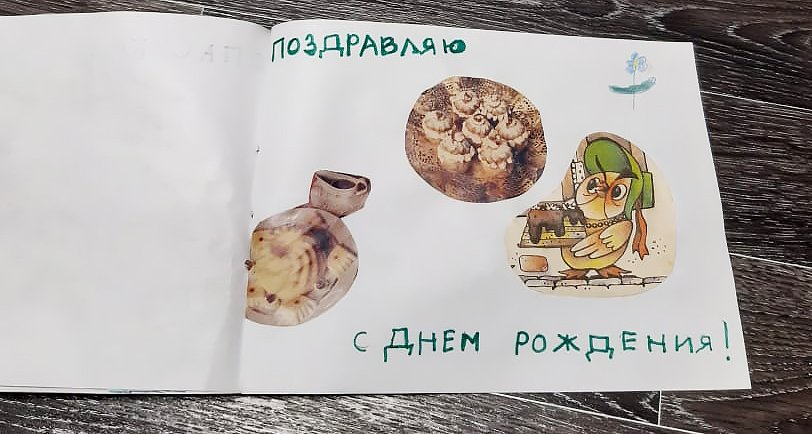 ПОЗДРАВЛЯЮ
С ДНЕМ РОЖДЕНИЯ!